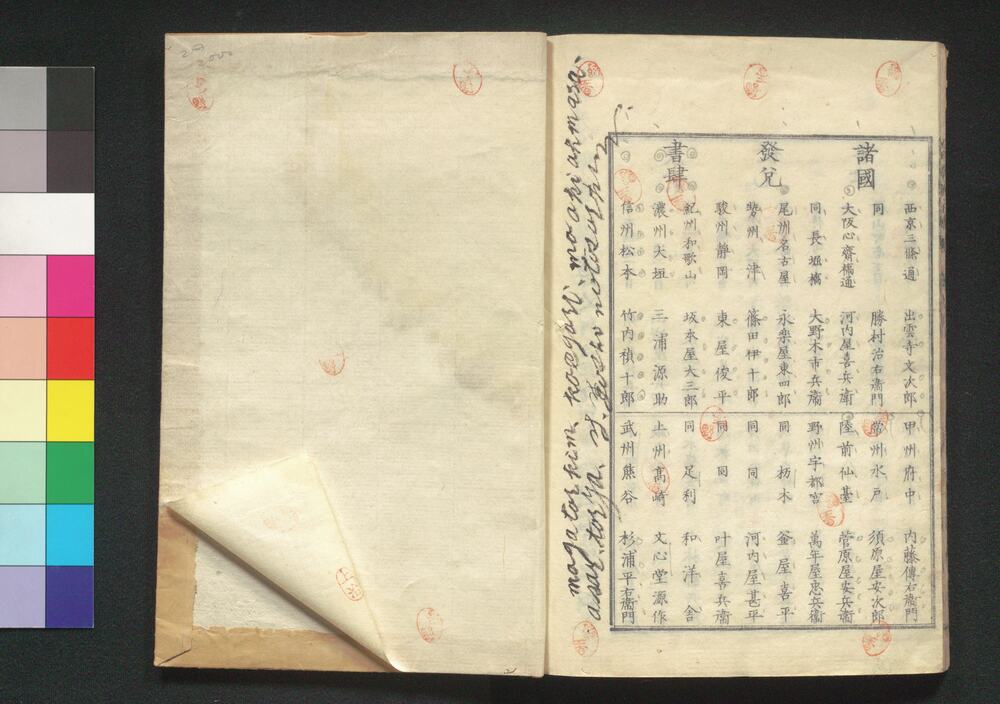 諸國
發兌
書肆
西京三條通 出雲寺文次郎
同 勝村治右衞門
大阪心齋橋通 河内屋喜兵衞
同長堀橋 大野木市兵衞
尾洲名古屋 永樂屋東四郎
勢州津 篠田伊十郎
駿州静岡 東屋俊平
紀州和歌山 坂本屋大三郎
濃州大垣 三浦源助
信州松本 竹内禎十郎
甲州府中 内藤傳右衞門
常州水戸 須原屋安次郎
陸前仙臺 菅原屋安兵衞
野州宇都宮 萬年屋忠兵衞
同栃木 釜屋喜平
同同 河内屋甚平
同同 叶屋喜兵衞
同足利 和洋舎
上州髙崎 文心堂源作
武州熊谷 杉浦平右衞門